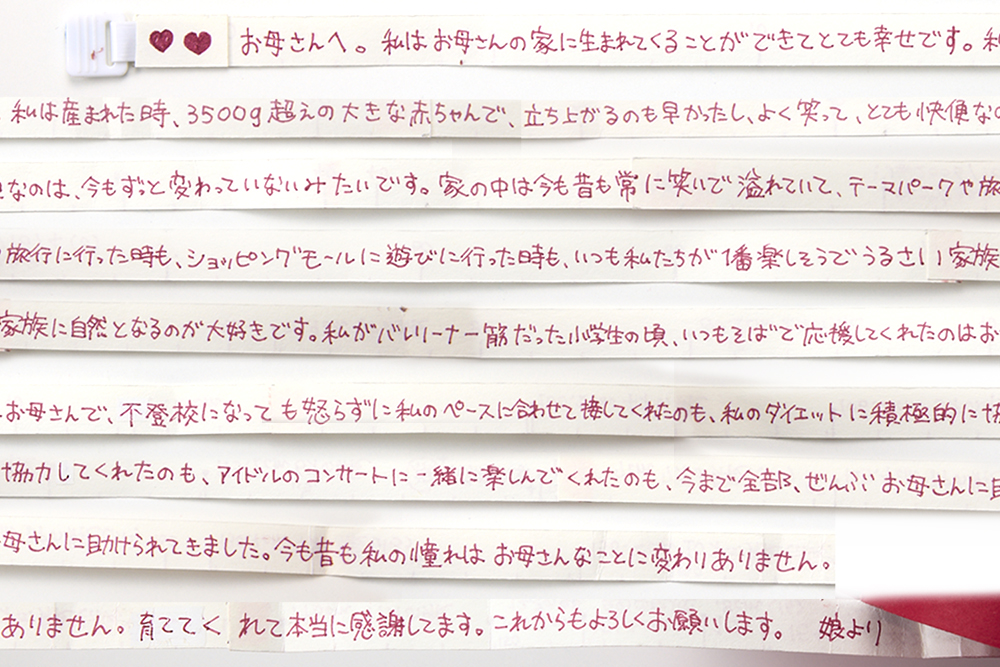 ♥♥ お母さんへ。私はお母さんの家に生まれてくることができてとても幸せです。私
私は産まれた時、3500g超えの大きな赤ちゃんで、立ち上がるのも早かったし、よく笑って、とても快便なの
なのは、今もずっと変わっていないみたいです。家の中は今も昔も常に笑いで溢れていて、テーマパークや旅
旅行に行った時も、ショッピングモールに遊びに行った時も、いつも私たちが1番楽しそうでうるさい家族
家族に自然となるのが大好きです。私がバレリーナ一筋だった小学生の頃、いつもそばで応援してくれたのはお
お母さんで、不登校になっても怒らずに私のペースに合わせて接してくれたのも、私のダイエットに積極的に協
協力してくれたのも、アイドルのコンサートに一緒に楽しんでくれたのも、今まで全部、ぜんぶお母さんに助
母さんに助けられてきました。今も昔も私の憧れはお母さんなことに変わりありません。
ありません。育ててくれて本当に感謝してます。これからもよろしくお願いします。 娘より